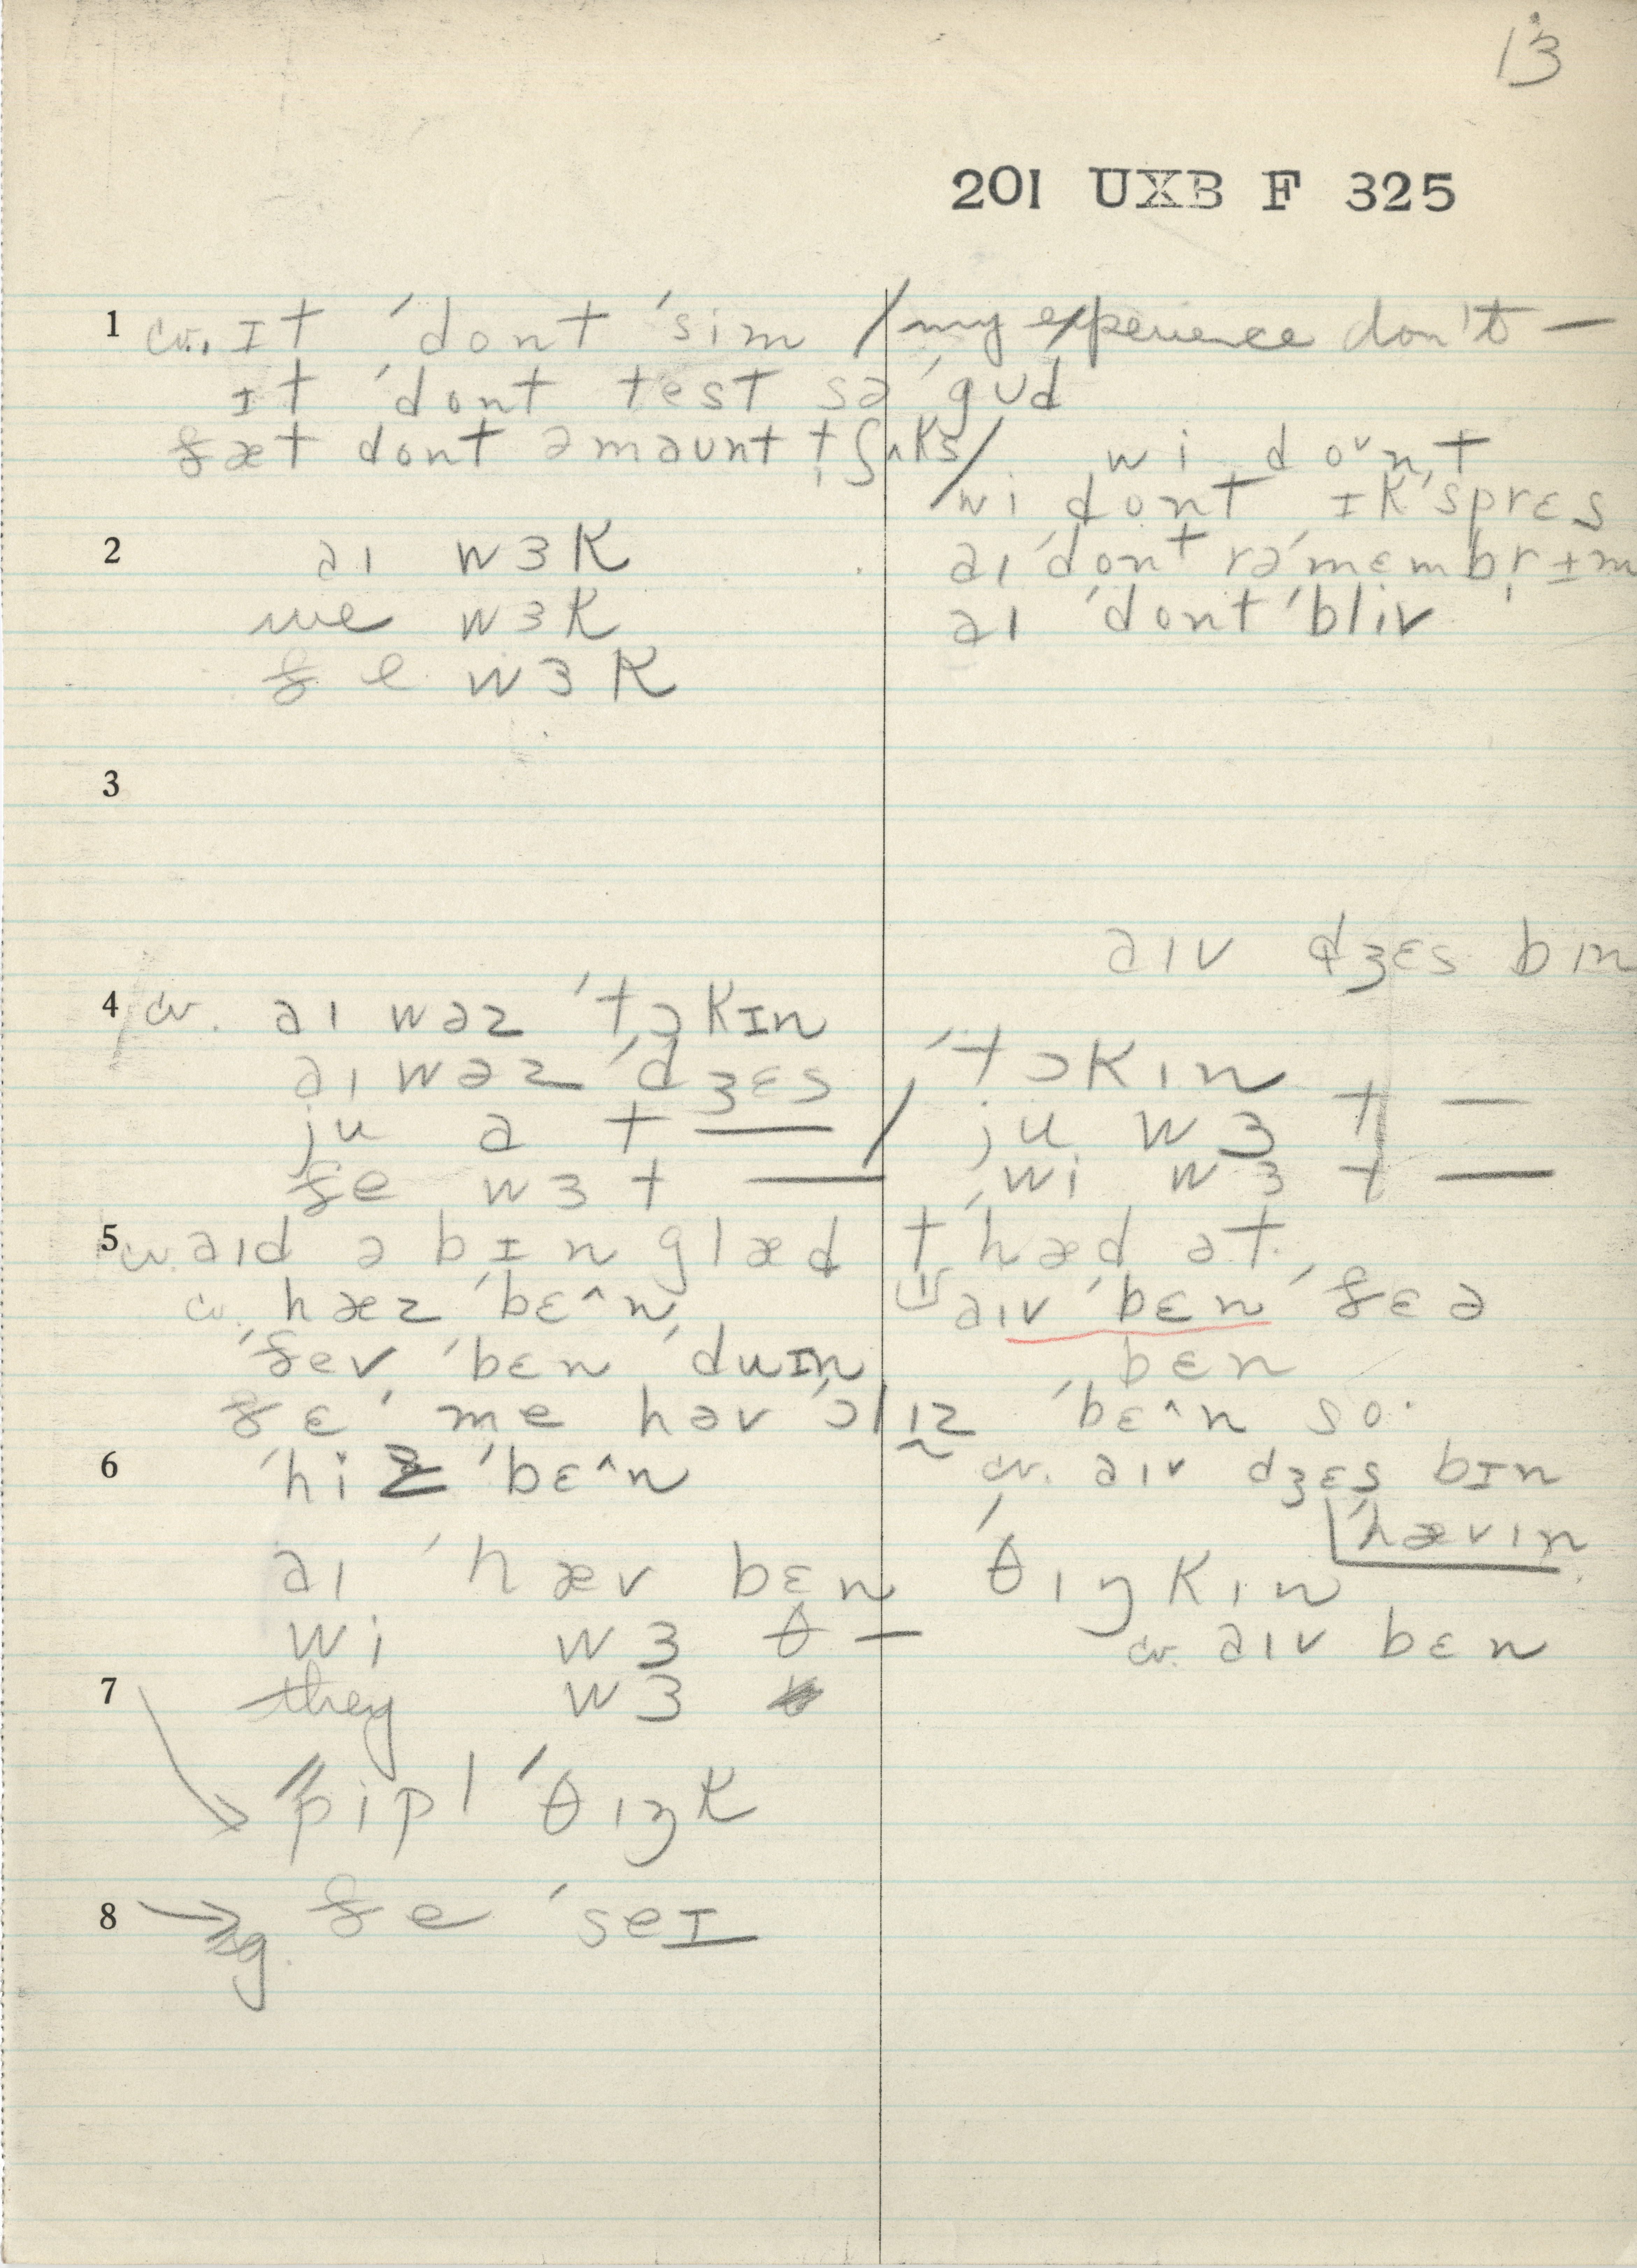 13
201 UXB F 325
1 cv. ɪt ˈdont ˈsim / my experience don't —
ɪt ˈdont test sə ˈgʊd
ðæt dont əmaʊnt t ʃʌks /
wi doʊnt
wi dont ɪkˈsprɛs
2 aɪ wɜk
aɪ ˈdont rəˈmɛmbr̩ ɪm
we wɜk
aɪ ˈdont ˈbliv
ðe wɜk
3
aɪv dʒɛs bɪn
4 cv. aɪ wəz ˈtɔkɪn
aɪ wəz ˈdʒɛs / ˈtɔkɪn
ju ə t — / ju wɜ t —
ðe wɜ t — wi wɜ t —
5 cv. aɪd ə bɪn glæd t hæd ət.
cv. hæz ˈbɛ^n aɪv ˈbɛn ˈðɛə
ˈðev ˈbɛn ˈduɪn bɛn
ðɛ ˈme həv ˈɔlɪz ˈbɛ^n so.
6 ˈhiz ˈbɛ^n cv. aɪv dʒɛs bɪn
ˈhævɪn
aɪ ˈhæv bɛn ˈθɪŋkɪn
wi wɜ θ — cv. aɪv bɛn
7 they wɜ
"pipl ˈθɪŋk
8 → ðe ˈseɪ